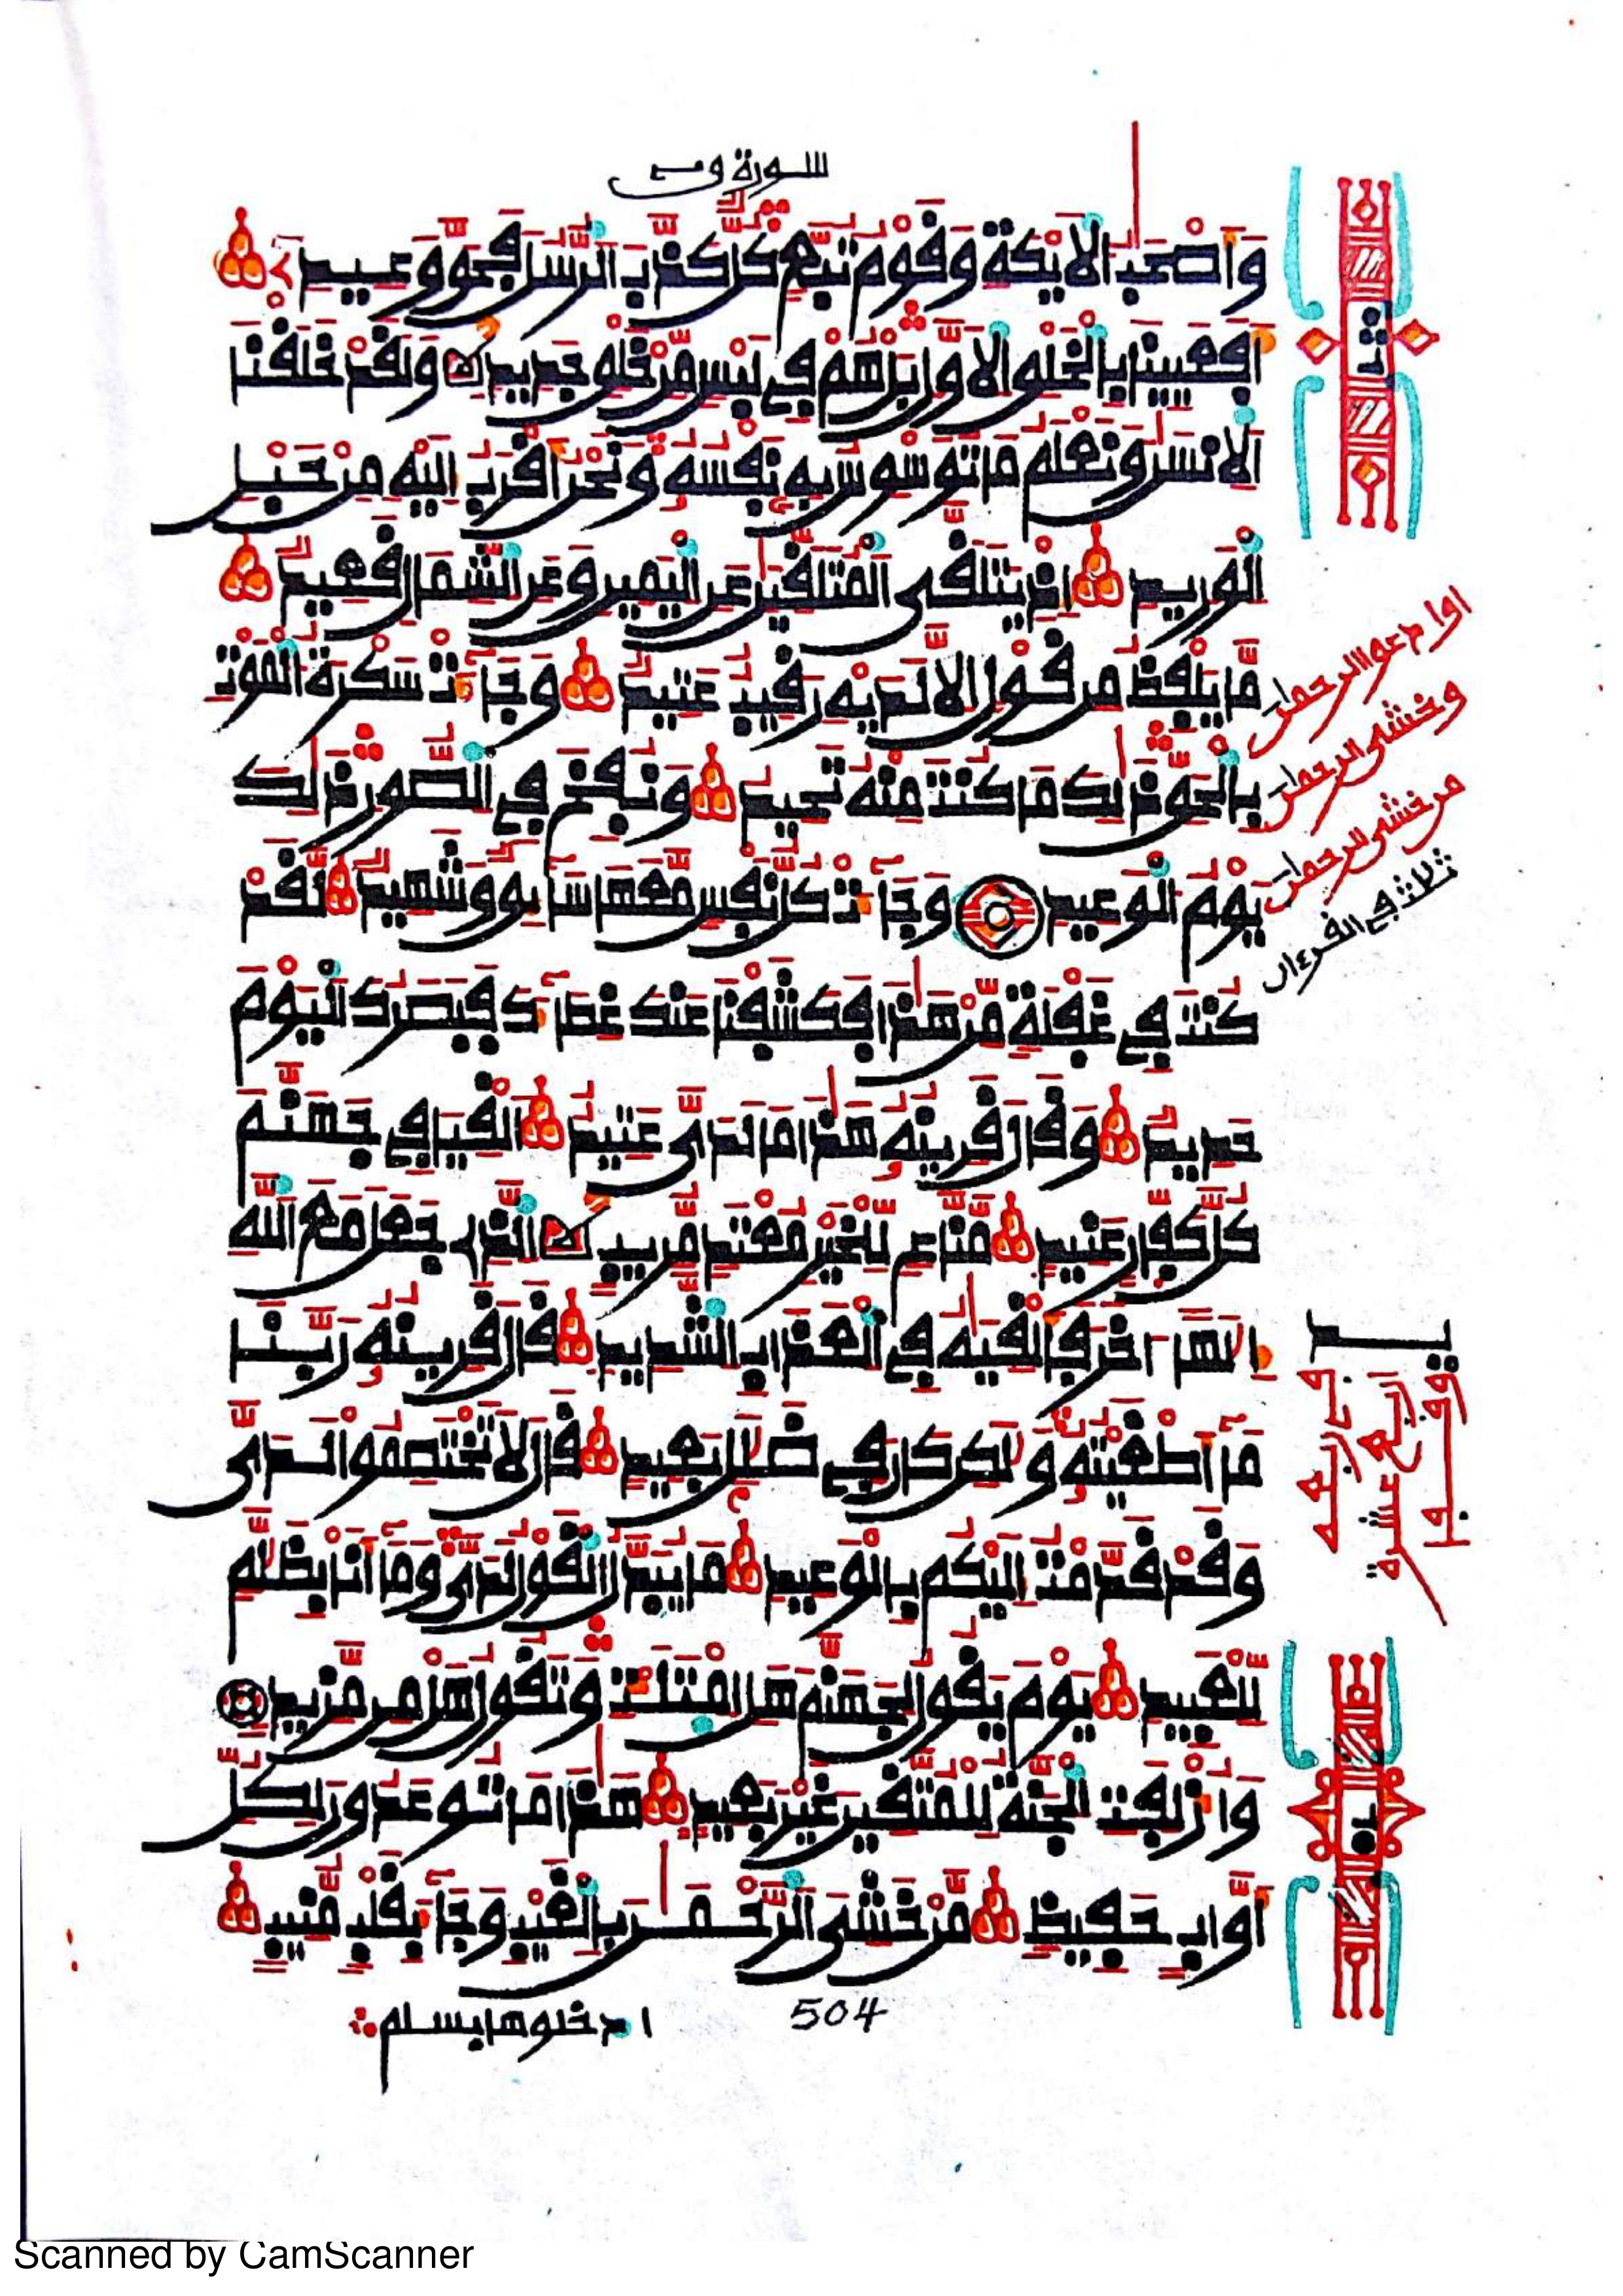 سورة ق
وأصحب الأيكة وقوم تبع كل كذب الرسل فحق وعيد
أفعيينا بالخلق الأول بل هم في لبس من خلق جديد ولقد خلقنا
الإنسن ونعلم ما توسوس به نفسه ونحن أقرب إليه من حبل
الوريد إذ يتلقى المتلقين عن اليمين وعن الشمال قعيد
ما يلفظ من قول إلا لديه رقيب عتيد وجاءت سكرة الموت
بالحق ذلك ما كنت منه تحيد ونفخ في الصور ذلك
يوم الوعيد وجاءت كل نفس معها سائق وشهيد لقد
كنت في غفلة من هذا فكشفنا عنك غطاءك فبصرك اليوم
حديد وقال قرينه هذا ما لدي عتيد ألقيا في جهنم
كل كفار عنيد مناع للخير معتد مريب الذي جعل مع الله
إلها اخر فألقيه في العذاب الشديد قال قرينه ربنا
ما أطغيته ولكن كان في ضلل بعيد قال لا تختصموا لدي
وقد قدمت إليكم بالوعيد ما يبدل القول لدي وما أنا بظلم
للعبيد يوم يقول لجهنم هل امتلأت وتقول هل من مزيد
وأزلفت الجنة للمتقين غير بعيد هذا ما توعدون لكل
أواب حفيظ من خشي الرحمن بالغيب وجاء بقلب منيب
504
ادخلوها بسلم
ثمن
اوا دعوا الرحمان
وخشي الرحمان
من خشي الرحمان
ثلاث في القرءان
Scanned by CamScanner